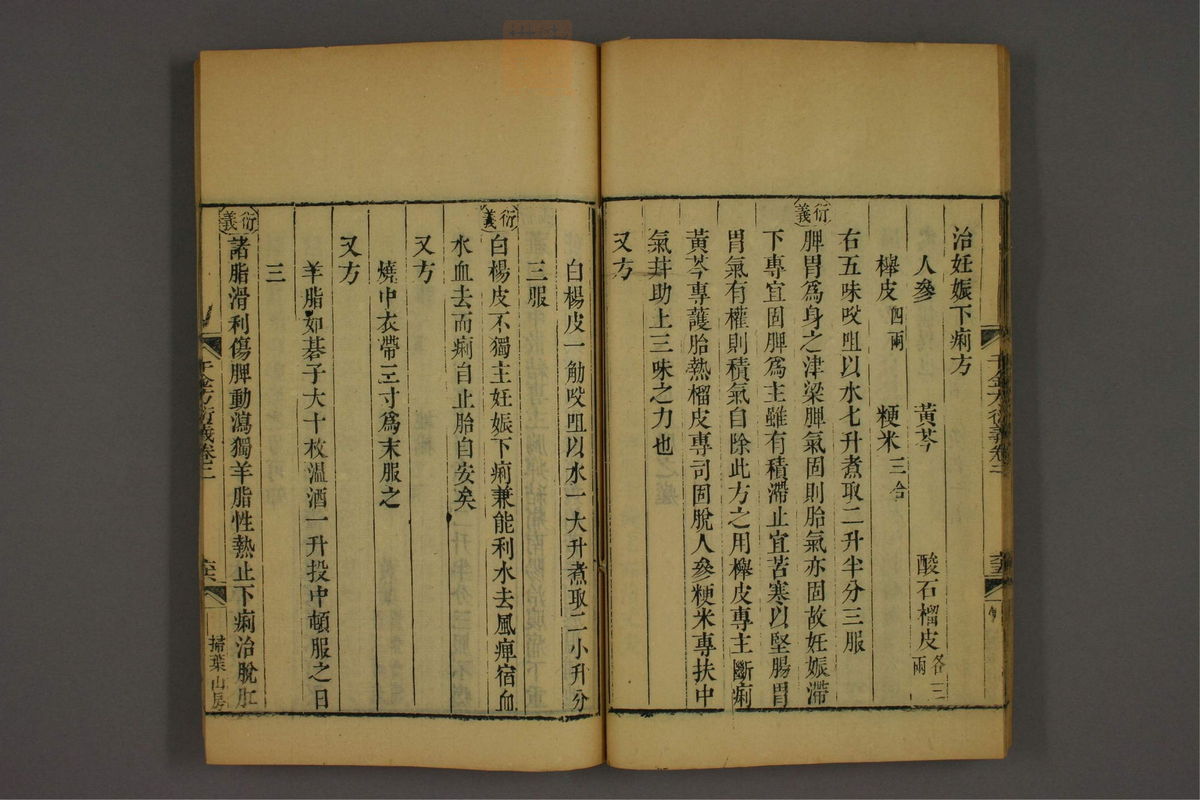 治妊娠下痢方
人參 黃芩 酸石榴皮各三兩
櫸皮四兩 粳米三合
右五味㕮咀以水七升煮取二升半分三服
衍義 脾胃爲身之津梁脾氣固則胎氣亦固故妊娠滯
下專宜固脾爲主雖有積滯止宜苦寒以堅腸胃
胃氣有權則積氣自除此方之用櫸皮專主斷痢
黃芩專護胎熱榴皮專司固脫人參粳米專扶中
氣幷助上三味之力也
又方
千金方衍義卷二
白楊皮一觔㕮咀以水一大升煮取二小升分
三服
衍義 白楊皮不獨主妊娠下痢兼能利水去風痺宿血
水血去而痢自止胎自安矣
又方
燒中衣帶三寸爲末服之
又方
羊脂如棊子大十枚溫酒一升投中頓服之日
三
衍義 諸脂滑利傷脾動瀉獨羊脂性熱止下痢治脫肛
千金方衍義卷二
掃葉山房